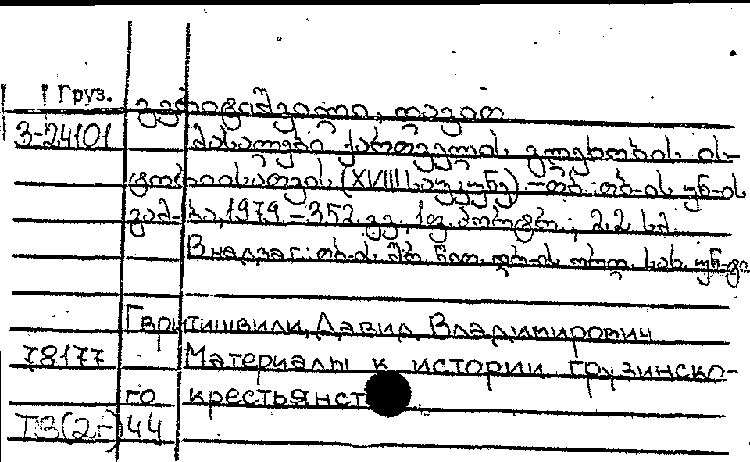 Груз.
გვრიტიშვილი, დავით
3-24101 მასალები ქართველი გლეხობის ის-
ტორიისათვის (XVIII საუკუნე) - თბ.: თბ-ის უნ-ის
გამ-ბა, 1979. - 352 გვ., 1 ფ. პორტრ.; 22 სმ.
В надзаг.: თბ-ის შრ. წით. დრ-ის ორდ. სახ. უნ-ტი
Гвритишвили, Давид Владимирович
78177 Материалы к истории грузинско-
го крестьянст
ТВ(2Г)44